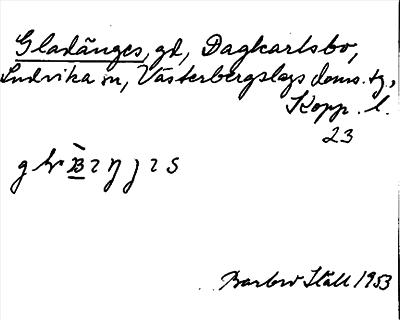 Gladänges, gd, Dagkarlsbo,
Ludvika sn, Västerbergslags doms. tg,
Kopp. l.
23
Barbro Ståll 1953